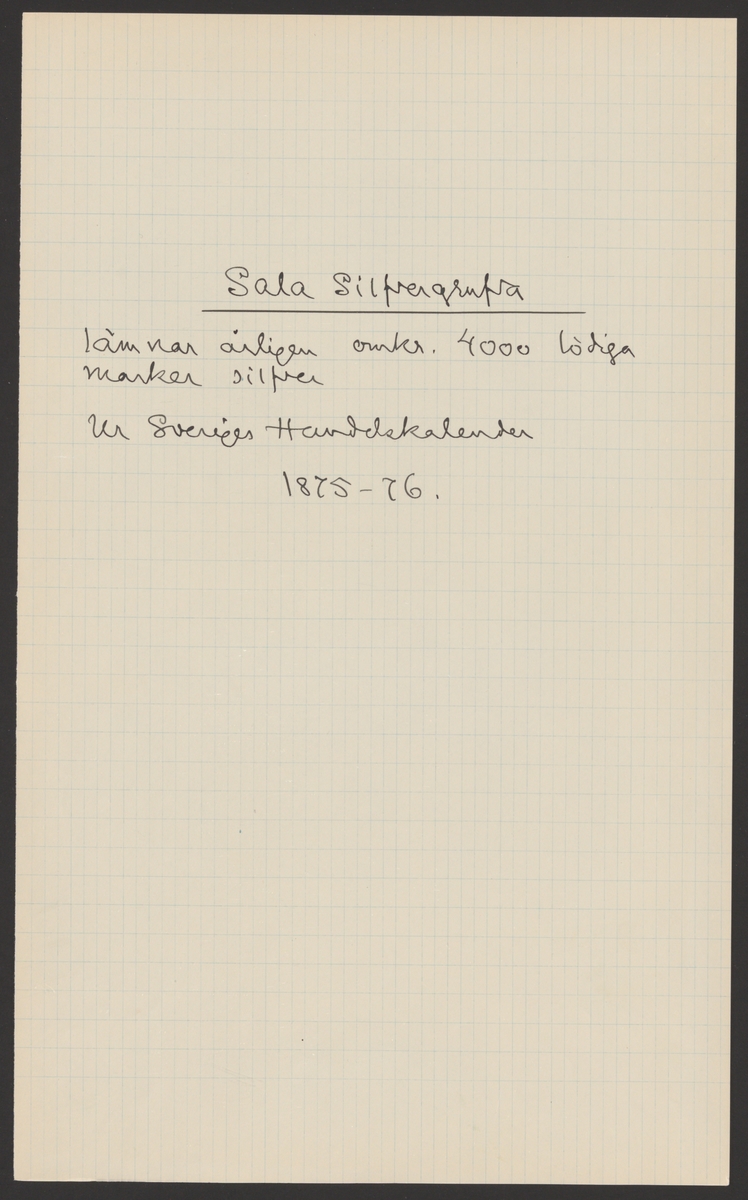 Sala Silfvergrufva
lämnar årligen omkr. 4000 lödiga
marker silfver
Ur Sveriges Handelskalender
1875-76.